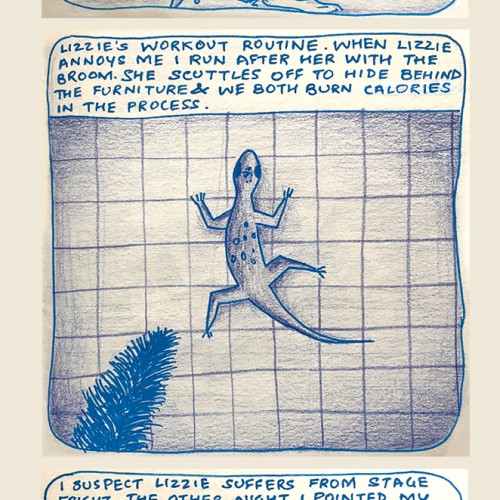 LIZZIE'S WORKOUT ROUTINE. WHEN LIZZIE
ANNOYS ME I RUN AFTER HER WITH THE
BROOM. SHE SCUTTLES OFF TO HIDE BEHIND
THE FURNITURE & WE BOTH BURN CALORIES
IN THE PROCESS.
I SUSPECT LIZZIE SUFFERS FROM STAGE
FRIGHT. THE OTHER NIGHT I POINTED MY